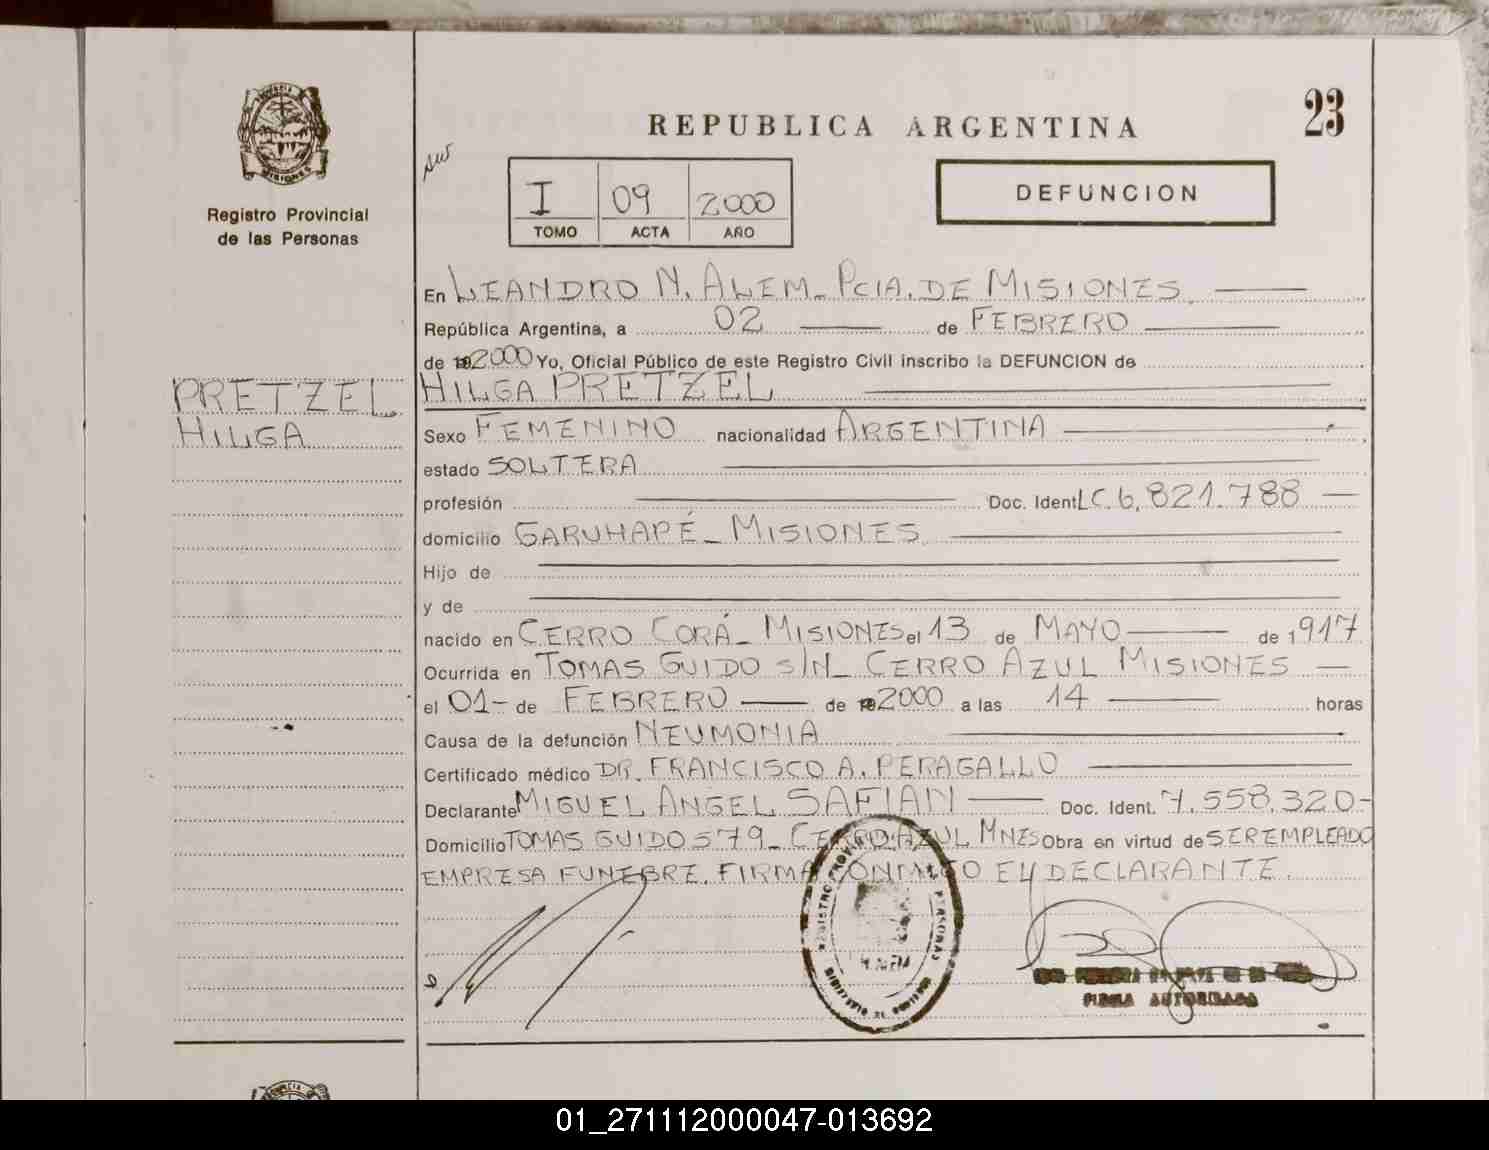 23
REPUBLICA ARGENTINA
MISIONES
Registro Provincial
de las Personas
I 09 2000
TOMO ACTA AÑO
DEFUNCION
PRETZEL
HILGA
En LEANDRO N. ALEM_ PCIA. DE MISIONES.
República Argentina, a 02 de FEBRERO
de 2000 Yo, Oficial Público de este Registro Civil inscribo la DEFUNCION de
HILGA PRETZEL
Sexo FEMENINO nacionalidad ARGENTINA
estado SOLTERA
profesión Doc. Ident. LC. 6.821.788
domicilio GARUHAPÉ_ MISIONES.
Hijo de
y de
nacido en CERRO CORÁ_ MISIONES el 13 de MAYO de 1917
Ocurrida en TOMAS GUIDO S/N_ CERRO AZUL MISIONES
el 01- de FEBRERO de 2000 a las 14 horas
Causa de la defunción NEUMONIA
Certificado médico DR. FRANCISCO A. PERAGALLO
Declarante MIGUEL ANGEL SAFIAN Doc. Ident. 7.558.320-
Domicilio TOMAS GUIDO 579_ CERRO AZUL MNES Obra en virtud de SER EMPLEADO
EMPRESA FUNEBRE. FIRMA CONMIGO EL DECLARANTE.
REGISTRO PROVINCIAL PERSONAS
FIRMA AUTORIZADA
01_271112000047-013692